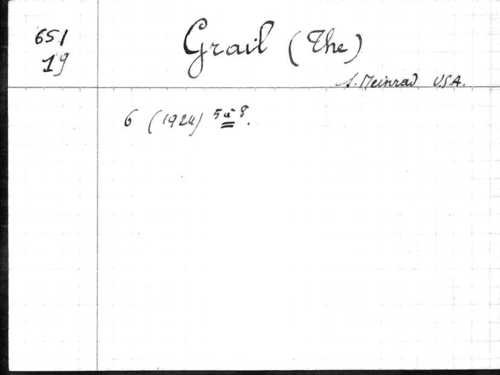 651
19
Grail (The)
S. Meinrad USA.
6 (1924) 5 à 8.